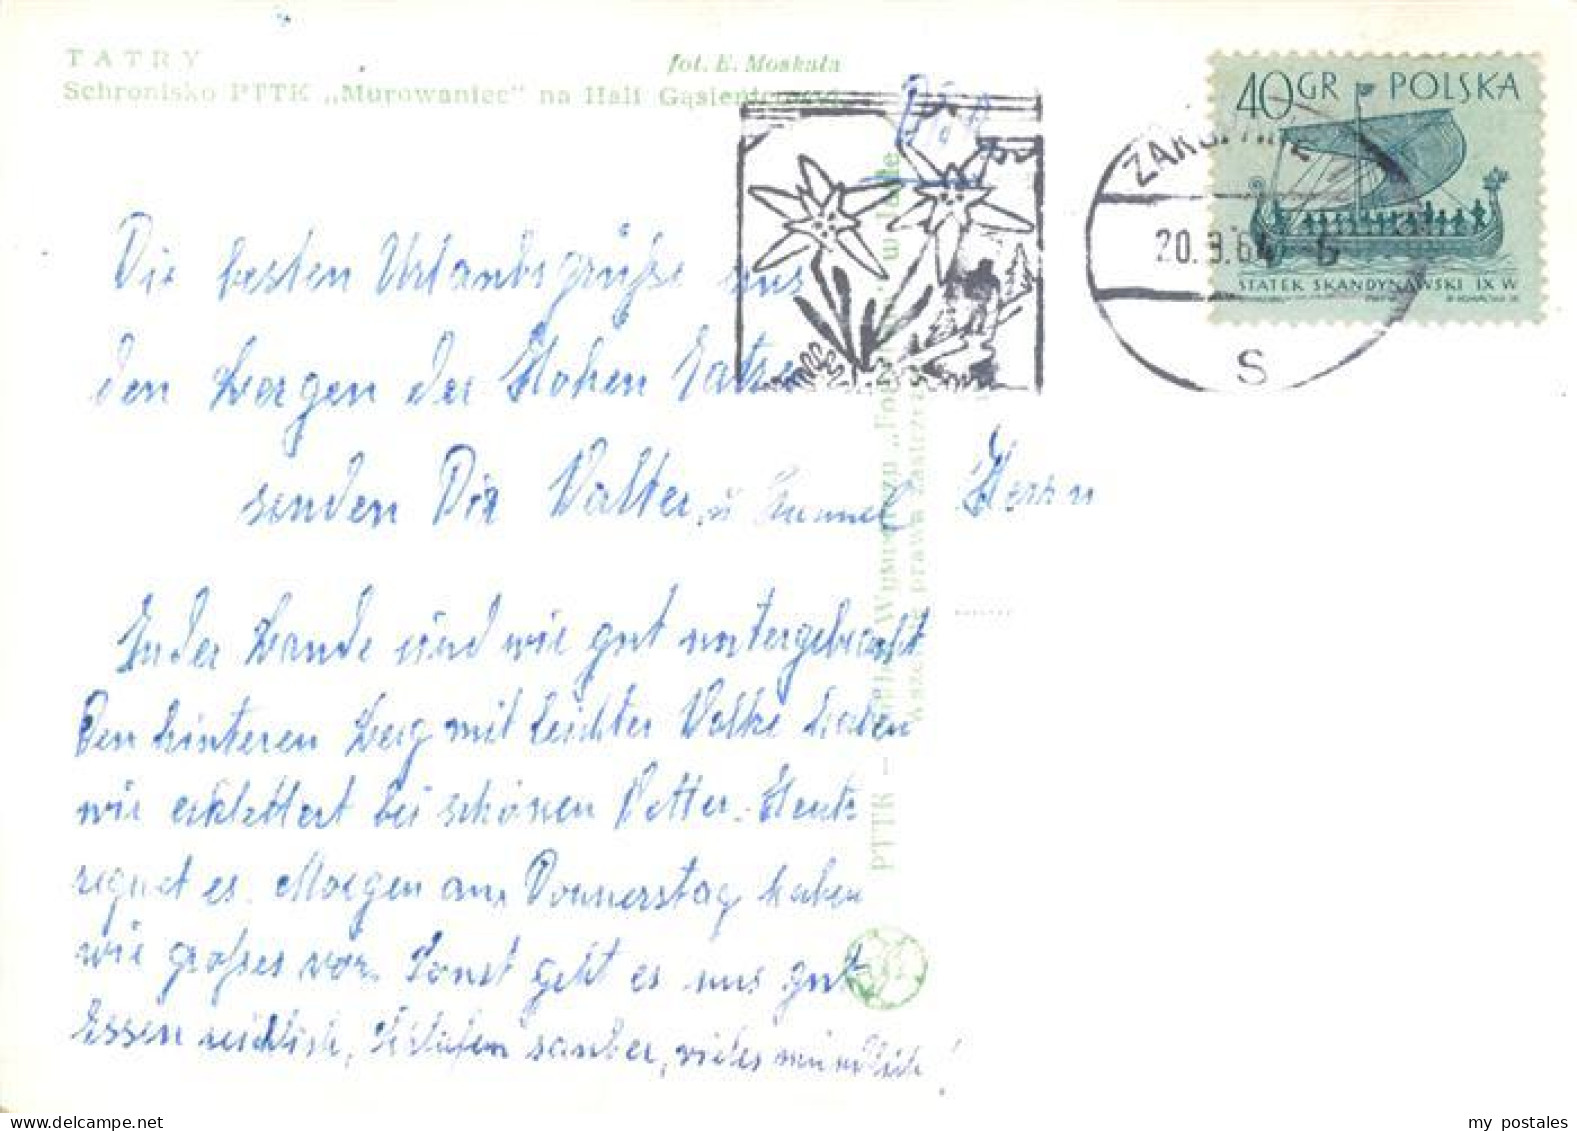 TATRY
fot. E. Moskała
Schronisko PTTK „Murowaniec" na Hali
40GR POLSKA
STATEK SKANDYNAWSKI IX W
ZAKOPANE
20.3.64
S
Die besten Urlaubsgrüße aus
den Bergen der Hohen Tatra
senden Dir Walter u
Herrn
In der Baude sind wir gut untergebracht
Den hinteren Berg mit leichter Wolke haben
wir erklettert bei schönen Wetter. Heute
regnet es. Morgen am Donnerstag haben
wir großes vor. Sonst geht es uns gut
Essen reichlich, Schlafen sauber, vieles mündlich!
PTTK
wszelkie prawa zastrzeż
my postales